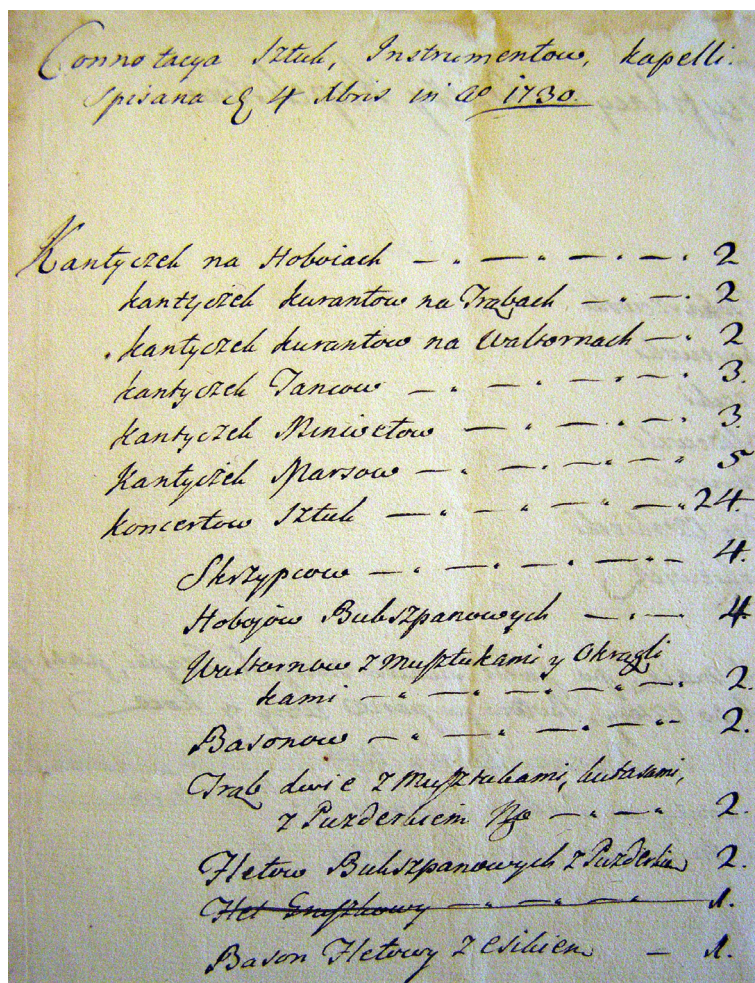 Connotacya Sztuk, Instrumentow, kapelli.
Spisana 4 Xbris in Ao 1730.
Kantyczek na Hoboiach — " — " — " — " 2
kantyczek kurantow na Trąbach — " — " 2
kantyczek kurantow na Waltornach — " 2
kantyczek Tancow — " — " — " — " 3.
kantyczek Miniwetow — " — " — " — " 3.
Kantyczek Marsow — " — " — " — " 5
koncertow Sztuk — " — " — " — " 24.
Skrzypcow — " — " — " — " — 4.
Hobojów Bukszpanowych — " — 4.
Waltornow z Musztukami y Okrągli
kami — " — " — " — " — " 2.
Basonow — " — " — " — " — 2.
Trąb dwie z Musztukami, kutasami,
z Puzderkiem — " — " 2.
Fletow Bukszpanowych z Puzderkiem 2.
Flet Gruszkowy — " — " — " — 1.
Bason Fletowy z esikiem — 1.